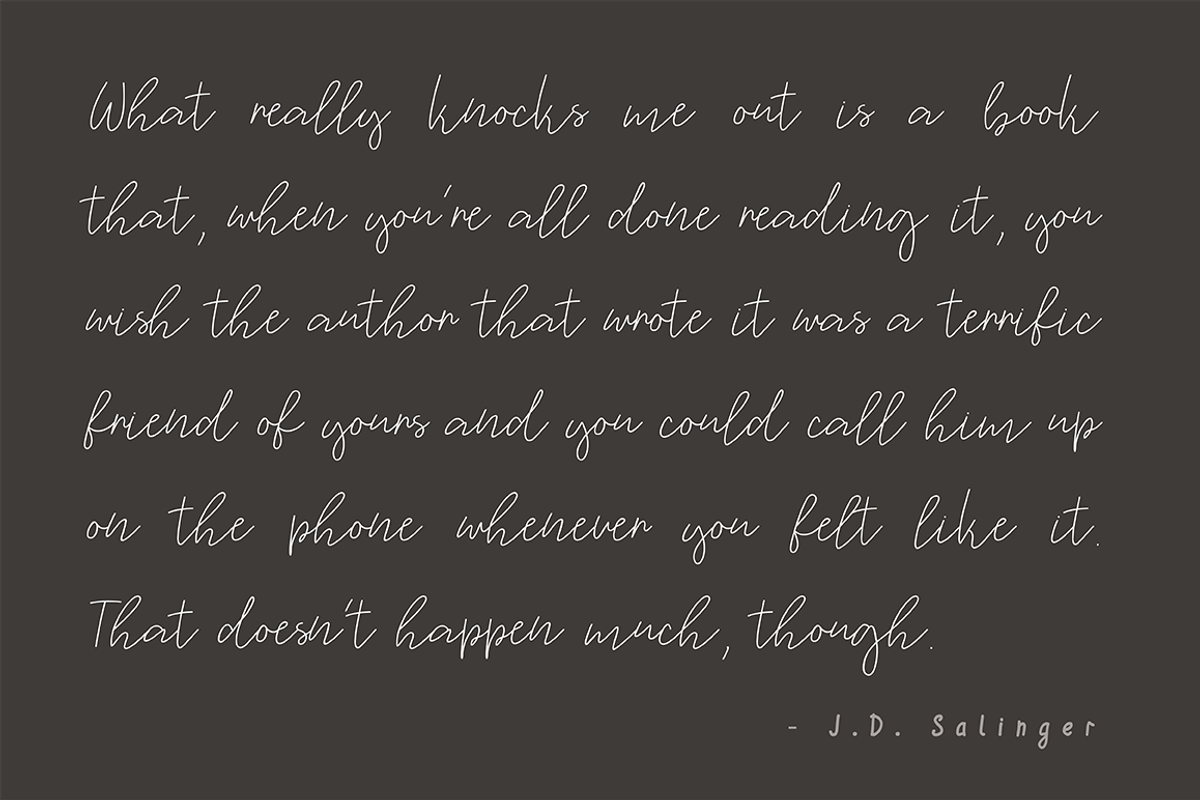 What really knocks me out is a book
that, when you're all done reading it, you
wish the author that wrote it was a terrific
friend of yours and you could call him up
on the phone whenever you felt like it.
That doesn't happen much, though.
- J.D. Salinger